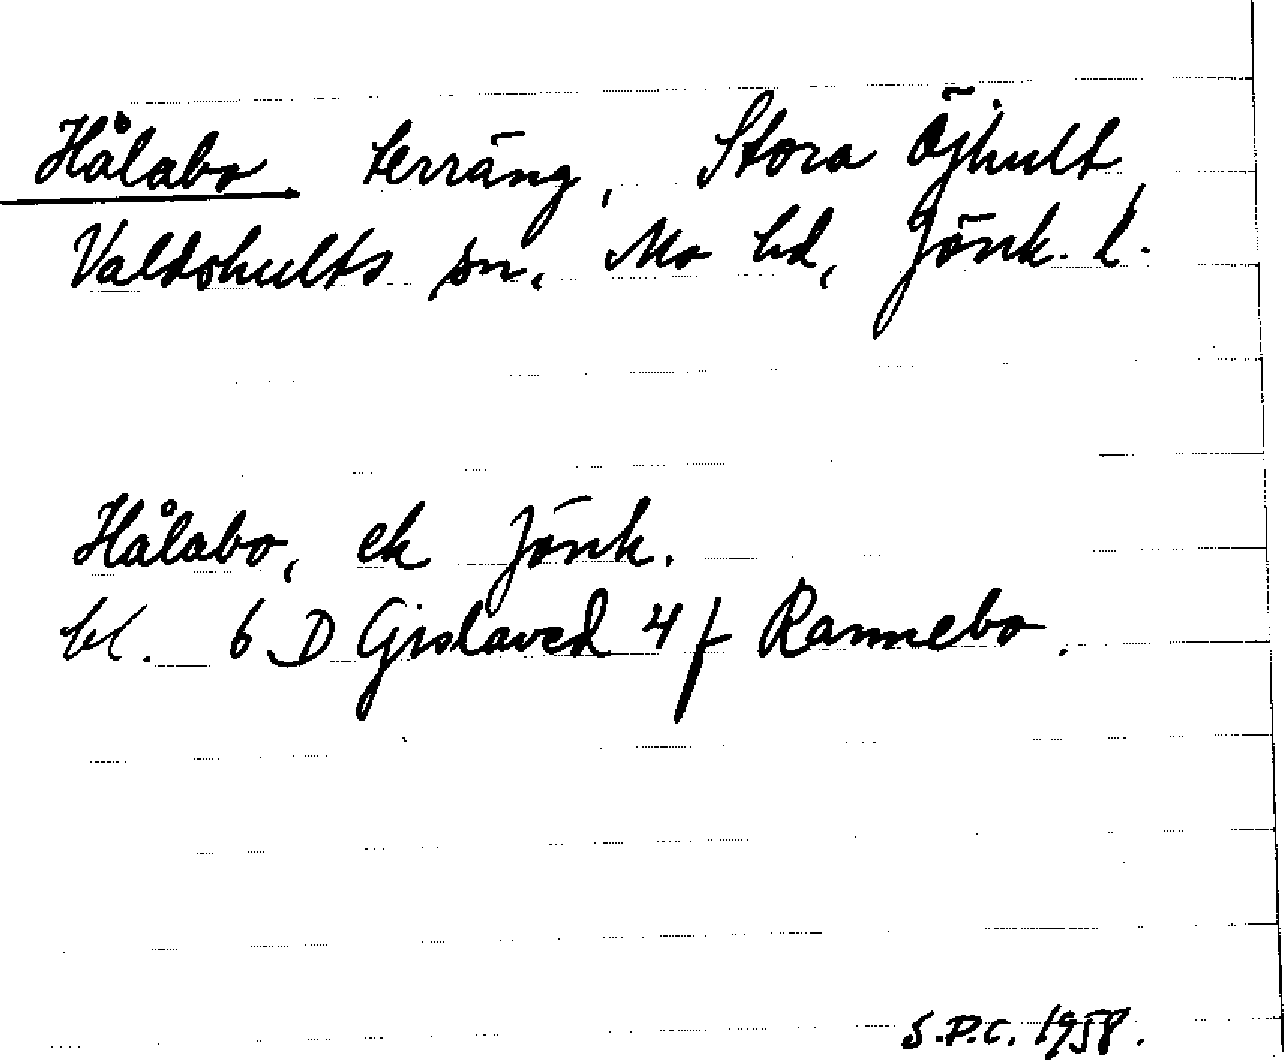 Hålabo. terräng, Stora Öjhult,
Valdshults sn, Mo hd, Jönk. l.
Hålabo, ek Jönk.
bl. 6 D Gislaved 4 f Rannebo.
S.P.C. 1958.